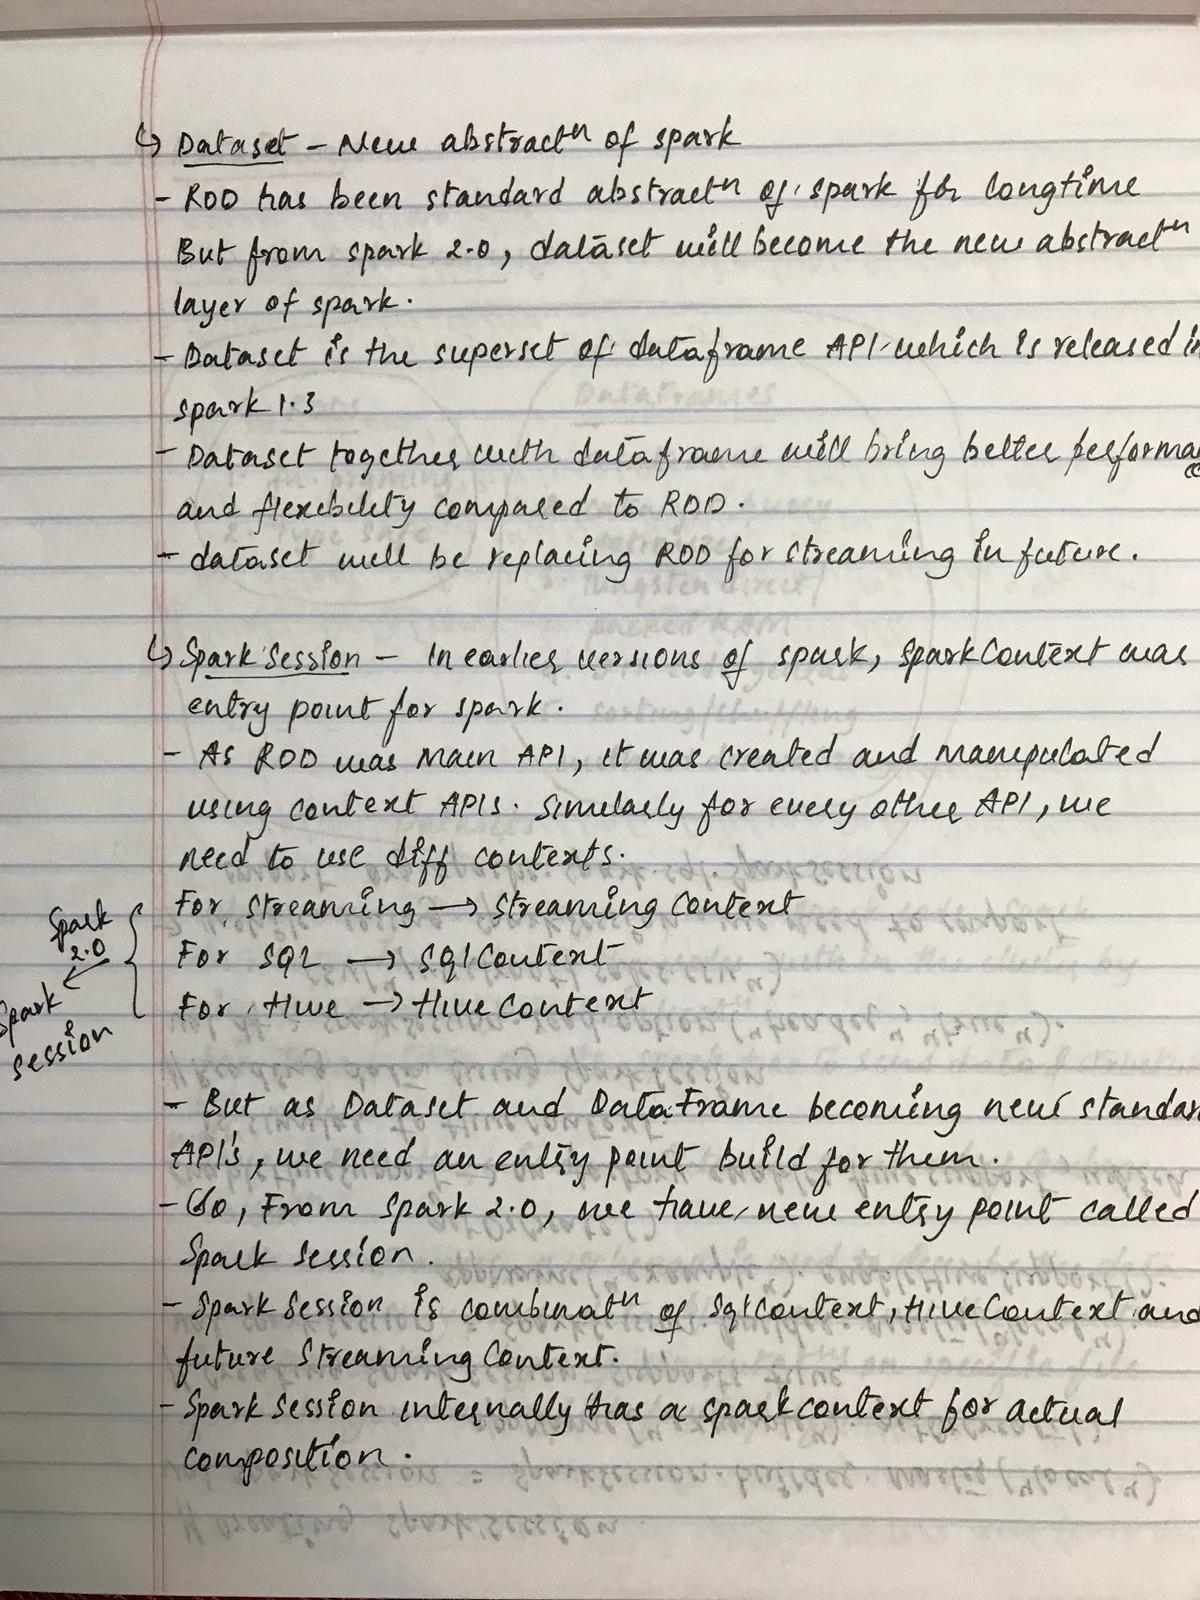 ↳ Dataset - New abstractⁿ of spark
- RDD has been standard abstractⁿ of spark for longtime
But from spark 2.0, dataset will become the new abstractⁿ
layer of spark.
- Dataset is the superset of dataframe API which is released in
spark 1.3
- Dataset together with dataframe will bring better performance
and flexibility compared to RDD.
- dataset will be replacing RDD for streaming in future.
↳ Spark Session - In earlier versions of spark, Spark Context was
entry point for spark.
- As RDD was main API, it was created and manipulated
using context APIs. Similarly for every other API, we
need to use diff contexts.
For streaming → Streaming Context
For SQL → SqlContext
For Hive → Hive Context
Spark
2.0
Spark
session
- But as Dataset and DataFrame becoming new standar
API's, we need an entry point build for them.
- So, From Spark 2.0, we have new entry point called
Spark Session.
- Spark Session is combinatⁿ of SqlContext, HiveContext and
future Streaming Context.
- Spark Session internally has a spark context for actual
composition.